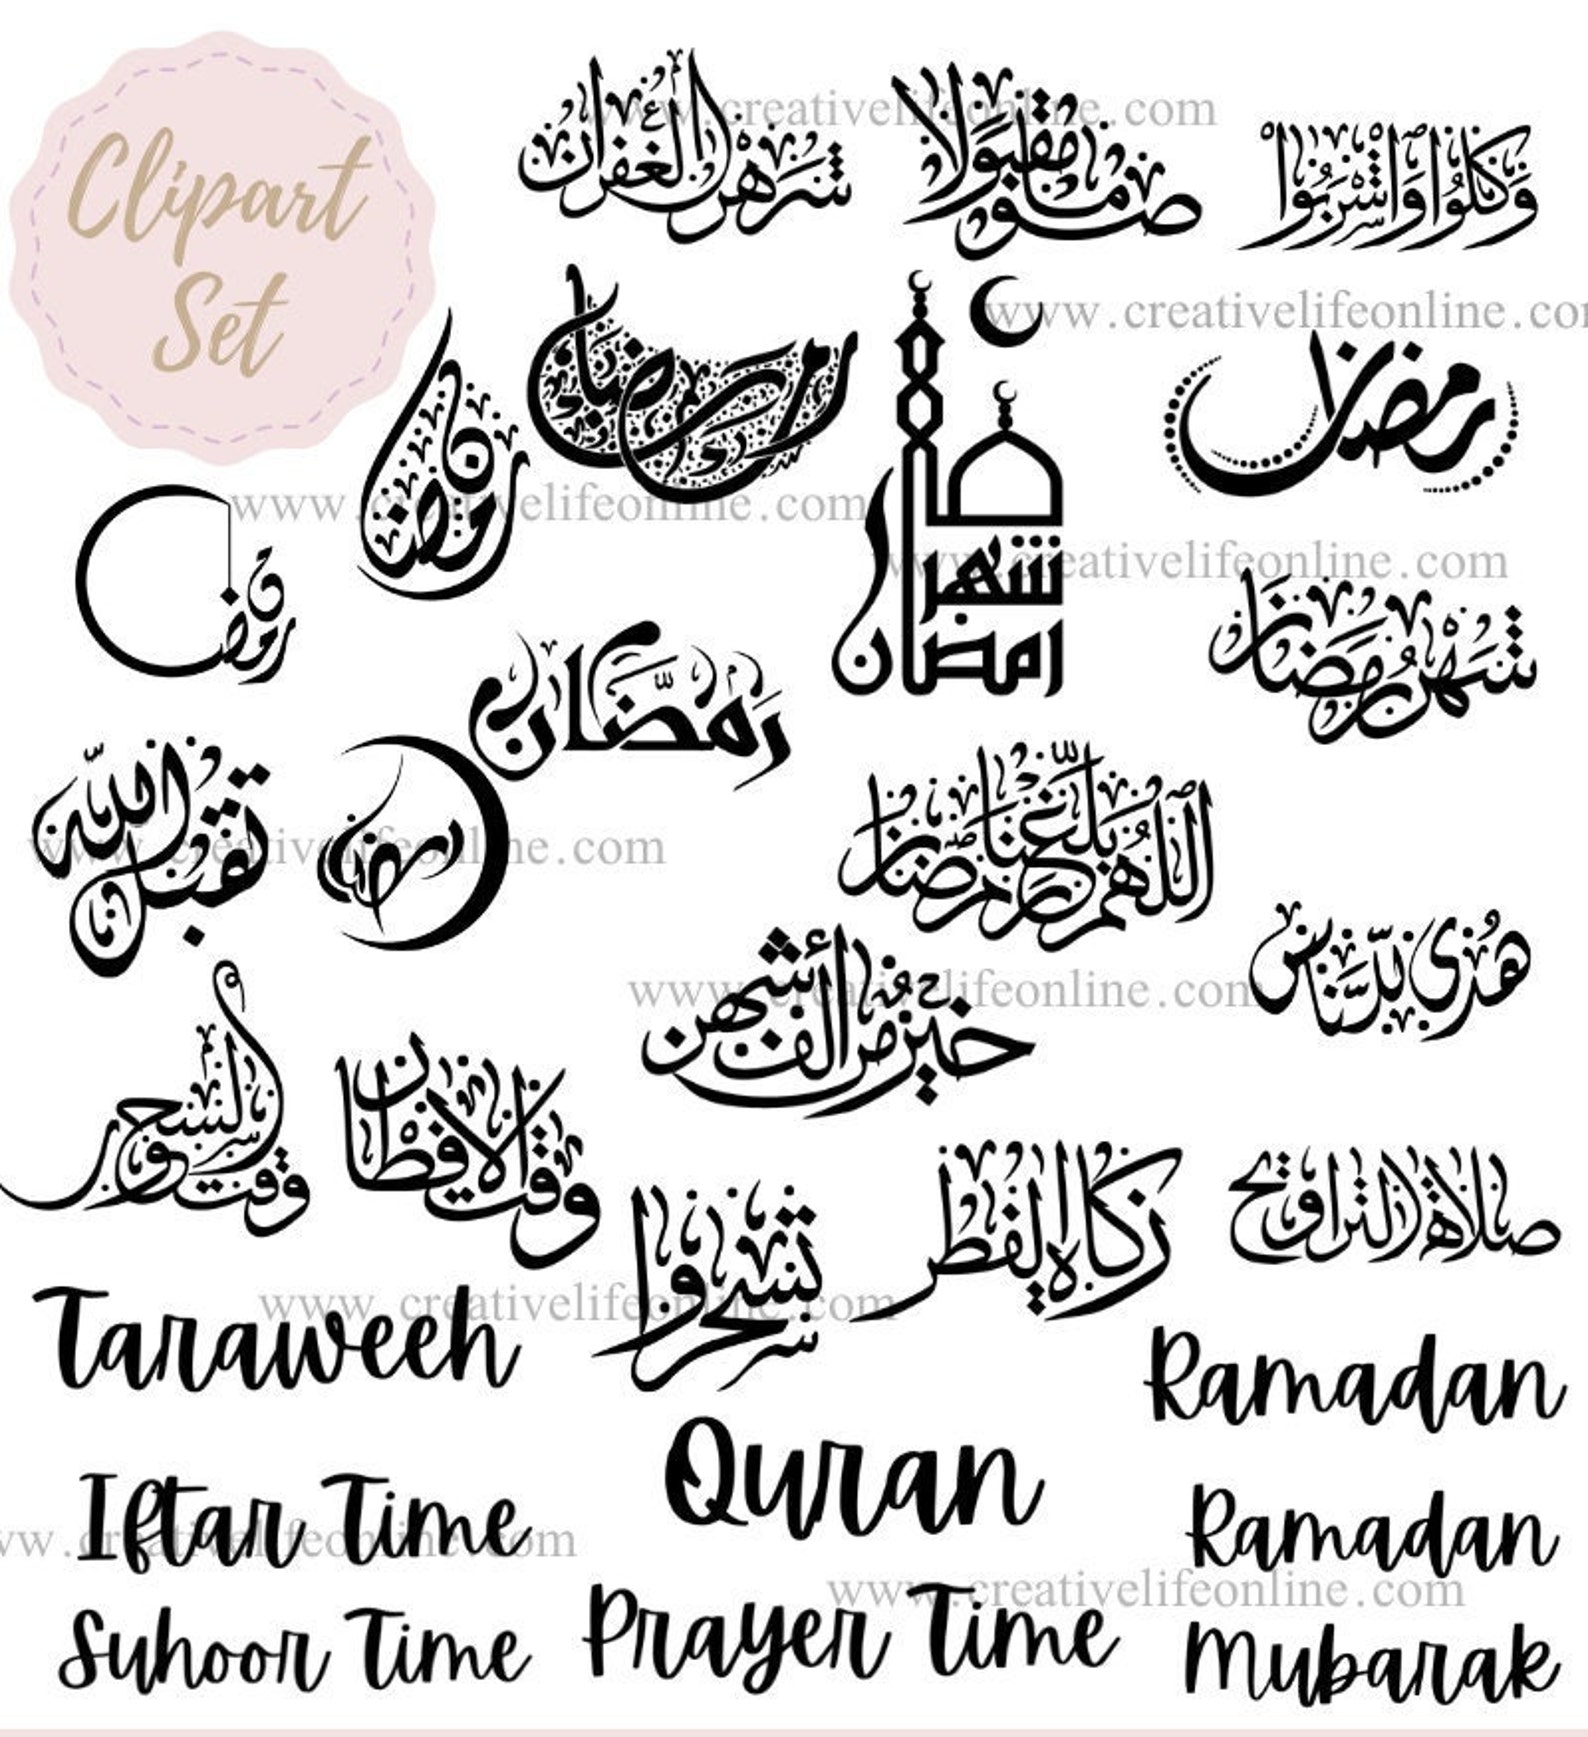 Clipart
Set
شهر الغفران
صوما مقبولا
وَكُلُوا وَاشْرَبُوا
رمضان
رمضان
رمضان
رمضان
شهر
رمضان
شهر رمضان
رمضان
تقبل الله
رمضان
اللهم بلغنا رمضان
هدى للناس
خير من ألف شهر
وقت السحور
وقت الافطار
تسحروا
زكاة الفطر
صلاة التراويح
Taraweeh
Ramadan
Quran
Iftar Time
Ramadan
Mubarak
Suhoor Time
Prayer Time
www.creativelifeonline.com
www.creativelifeonline.com
www.creativelifeonline.com
www.creativelifeonline.com
www.creativelifeonline.com
www.creativelifeonline.com
www.creativelifeonline.com
www.creativelifeonline.com
www.creativelifeonline.com